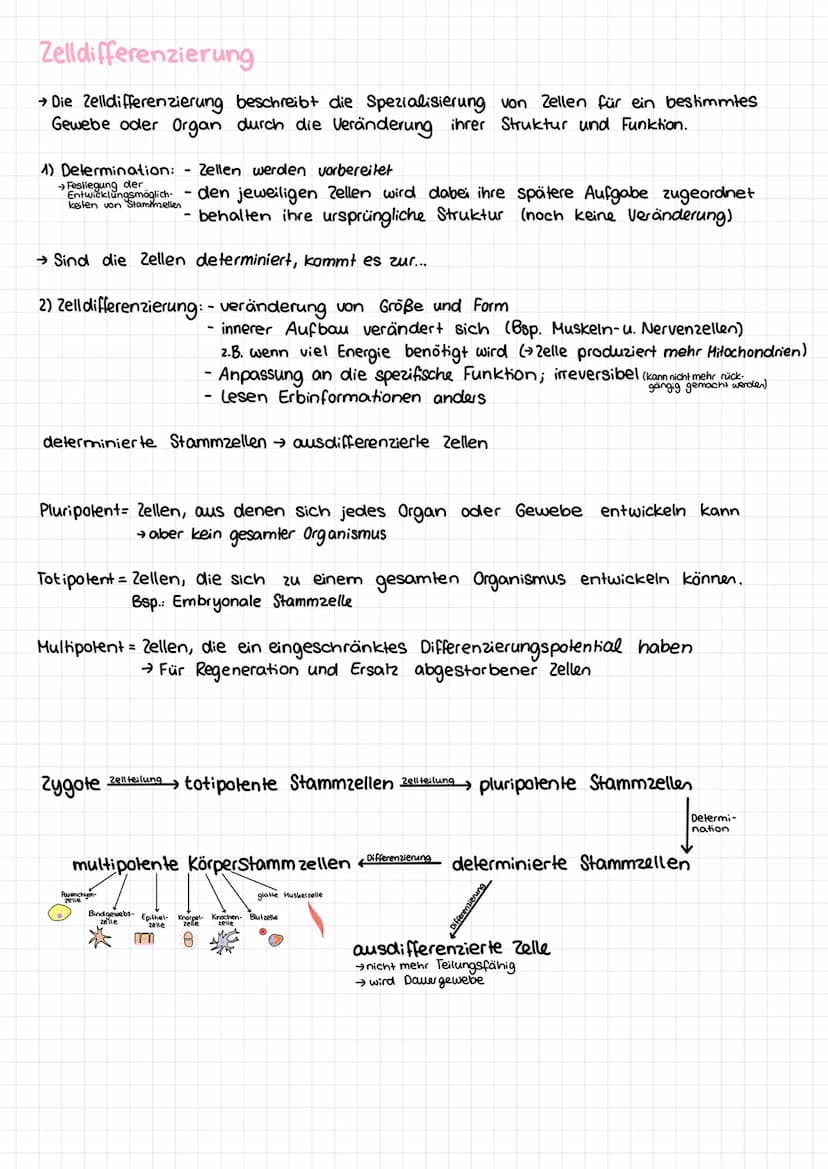 Zelldifferenzierung
→ Die Zelldifferenzierung beschreibt die Spezialisierung von Zellen für ein bestimmtes
Gewebe oder Organ durch die Veränderung ihrer Struktur und Funktion.
1) Determination: - Zellen werden vorbereitet
→ Festlegung der
Entwicklungsmöglich-
keiten von Stammzellen
- den jeweiligen Zellen wird dabei ihre spätere Aufgabe zugeordnet
- behalten ihre ursprüngliche Struktur (noch keine Veränderung)
→ Sind die Zellen determiniert, kommt es zur...
2) Zelldifferenzierung: - veränderung von Größe und Form
- innerer Aufbau verändert sich (Bsp. Muskeln- u. Nervenzellen)
z.B. wenn viel Energie benötigt wird (→ Zelle produziert mehr Mitochondrien)
- Anpassung an die spezifische Funktion; irreversibel (kann nicht mehr rück-
gängig gemacht werden)
- Lesen Erbinformationen anders
determinierte Stammzellen → ausdifferenzierte Zellen
Pluripotent = Zellen, aus denen sich jedes Organ oder Gewebe entwickeln kann
→ aber kein gesamter Organismus
Totipotent = Zellen, die sich zu einem gesamten Organismus entwickeln können.
Bsp.: Embryonale Stammzelle
Multipotent = Zellen, die ein eingeschränktes Differenzierungspotential haben
→ Für Regeneration und Ersatz abgestorbener Zellen
Zygote Zellteilung → totipotente Stammzellen Zellteilung → pluripotente Stammzellen
Determi-
nation
multipotente Körperstammzellen ← Differenzierung determinierte Stammzellen
Parenchym-
zelle
Bindgewebs-
zelle
Epithel-
zelle
Knorpel-
zelle
Knochen-
zelle
Blutzelle
glatte Muskelzelle
Differenzierung
ausdifferenzierte Zelle
→ nicht mehr Teilungsfähig
→ wird Dauergewebe